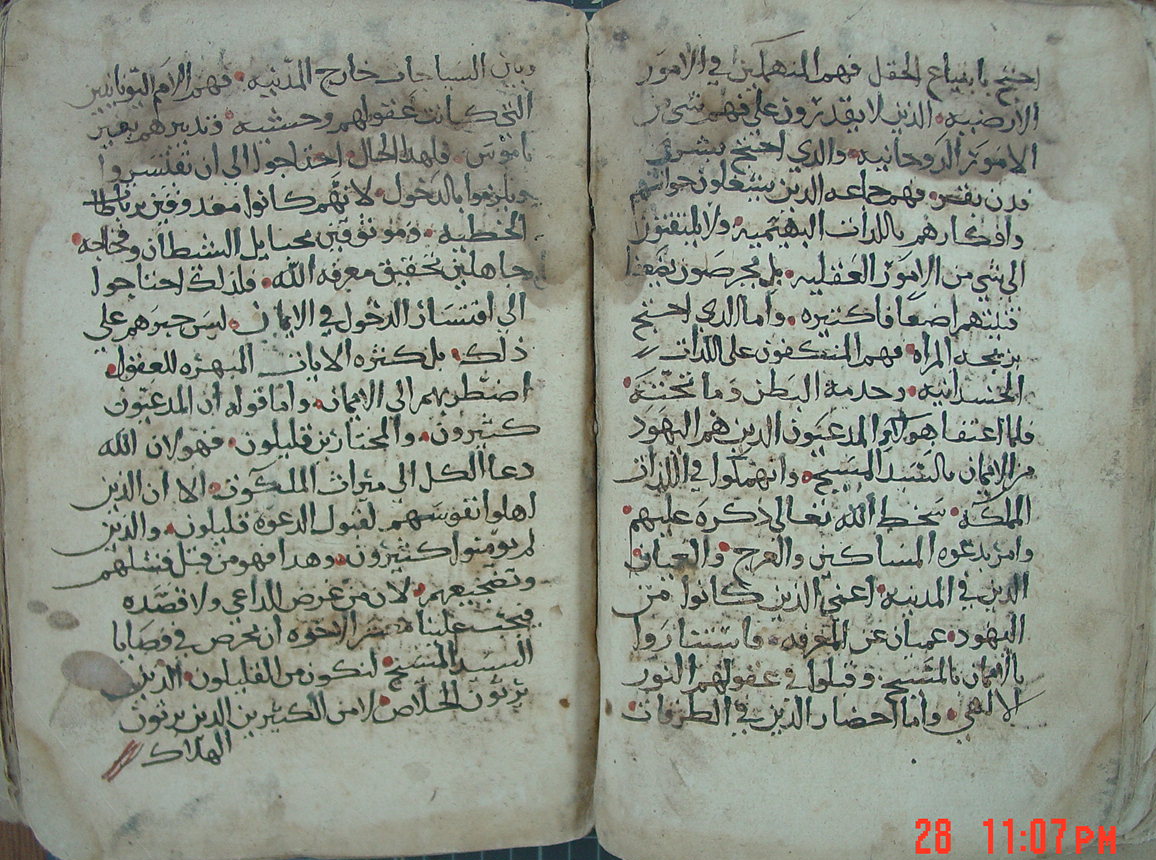 احتج بابتياع الحقل فهم المنهملين في الامور
الارضيه الذين لا يقدرون علي فهم شي من
الامور الروحانيه والذي احتج بشري
فدن بقر فهم جماعه الذين يشغلون حواسهم
وافكارهم باللذات البهيميه ولا يلتفتون
الي شي من الامور العقليه بل يحرصون
قنيتهم اضعافا كثيره واما الذي احتج
بزيجه المراه فهم المنعكفون علي اللذات
الجسدانيه وخدمة البطن وما تحته
فلما اعتفا هولاي المدعيون الذين هم اليهود
من الايمان بالسيد المسيح وانهمكوا في اللذات
المهلكه سخط الله تعالي ذكره عليهم
وامر بدعوه المساكين والعرج والعميان
الذين في المدينه اعني الذين كانوا من
اليهود عميان عن المعرفه فاستناروا
بالايمان بالمسيح وقبلوا في عقولهم النور
الالهي واما احضار الذين في الطرقات
وبين السياجات خارج المدينه فهم الامم اليونانيين
التي كانت عقولهم وحشيه وتدبيرهم بغير
ناموس فلهذا الحال احتاجوا الي ان تقتسروا
ويلزموا بالدخول لانهم كانوا معذوقين برباط
الخطيه وموتوقين بحبايل الشيطان وفخاخه
جاهلين تحقيق معرفه الله فلذلك احتاجوا
الي اقتسار الدخول في الايمان ليس جبرهم علي
ذلك بل كثره الايات المبهره للعقول
اضطرتهم الي الايمان واما قوله ان المدعيون
كثيرون والمختارين قليلون فهو لان الله
دعا الكل الي ميراث الملكوت الا ان الذين
اهلوا نفوسهم لقبول الدعوه قليلون والذين
لم يومنوا كثيرون وهدا فهو من قبل فشلهم
وتضجيعهم لان من غرض الداعي ولا قصده
فيجب علينا الاخوه ان نحرص في قضايا
السيد المسيح لنكون من القليلون الذين
يرثون الخلاص لا من الكثيرين الذين يرثون
الهلاك
28 11:07PM